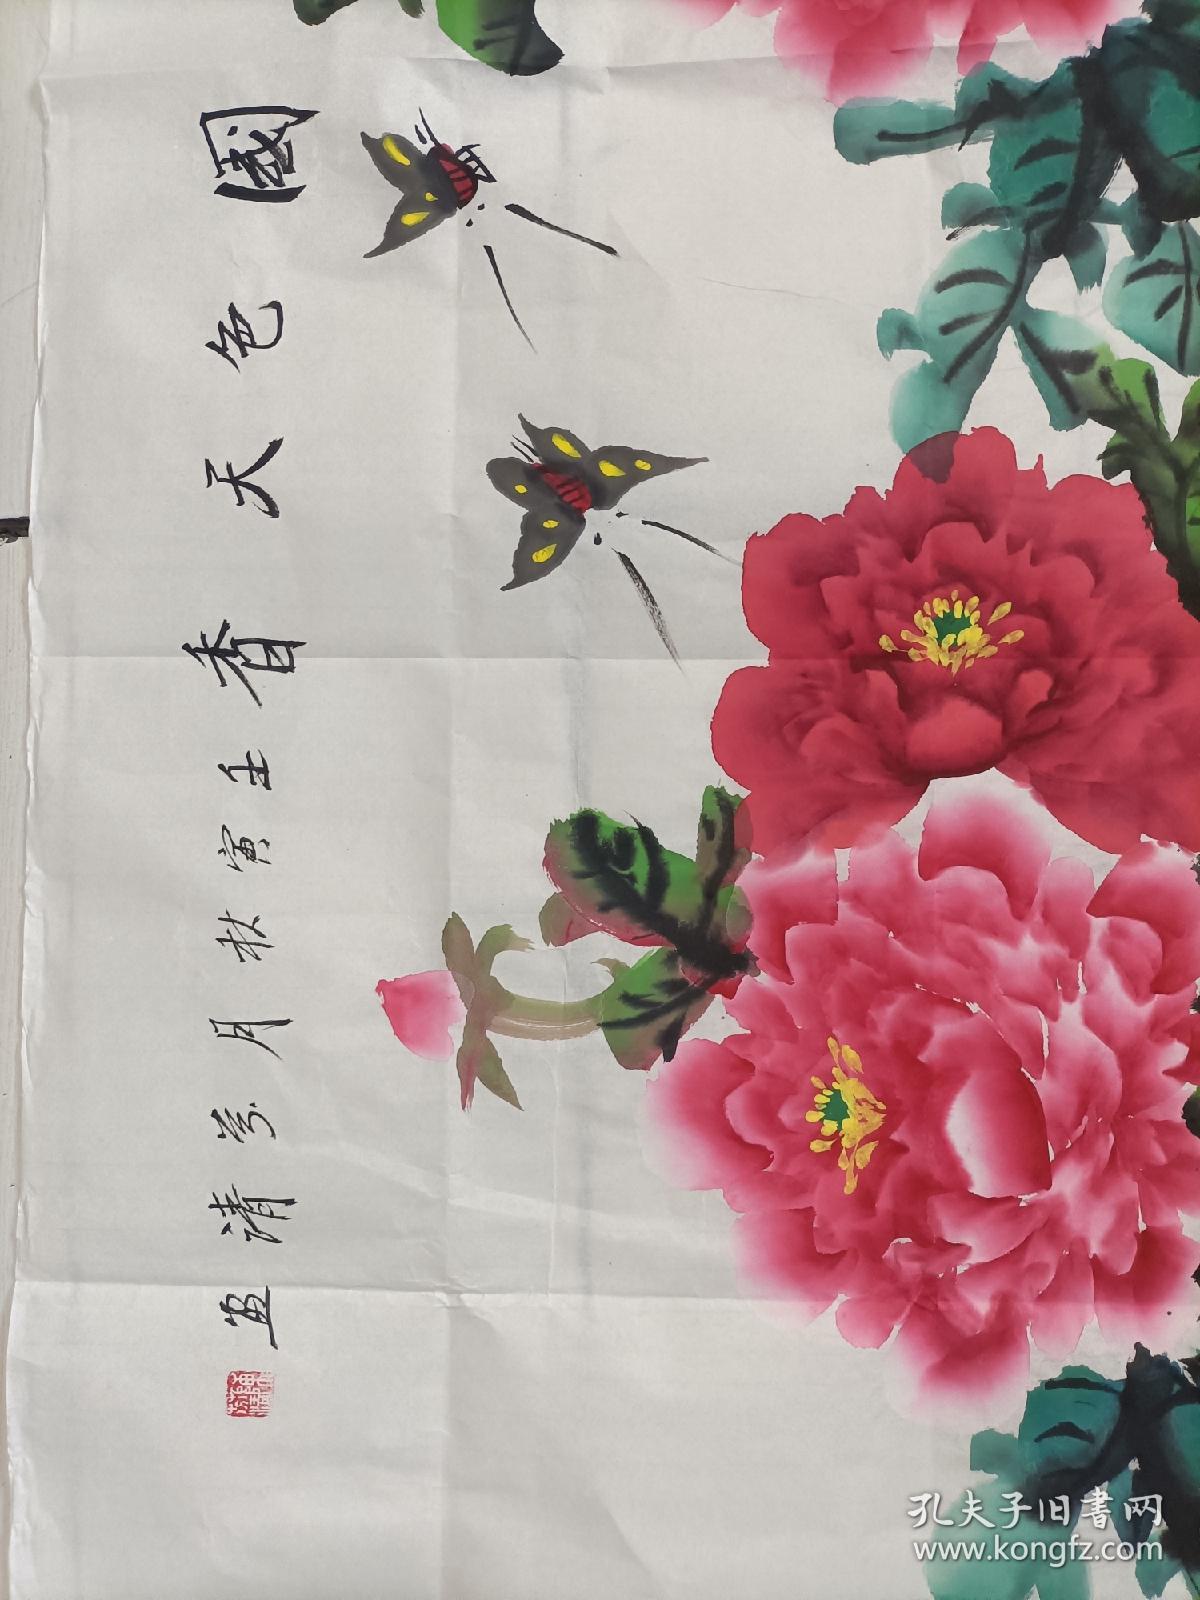 國色天香壬寅秋月芬清画
孔夫子旧書网
www.kongfz.com